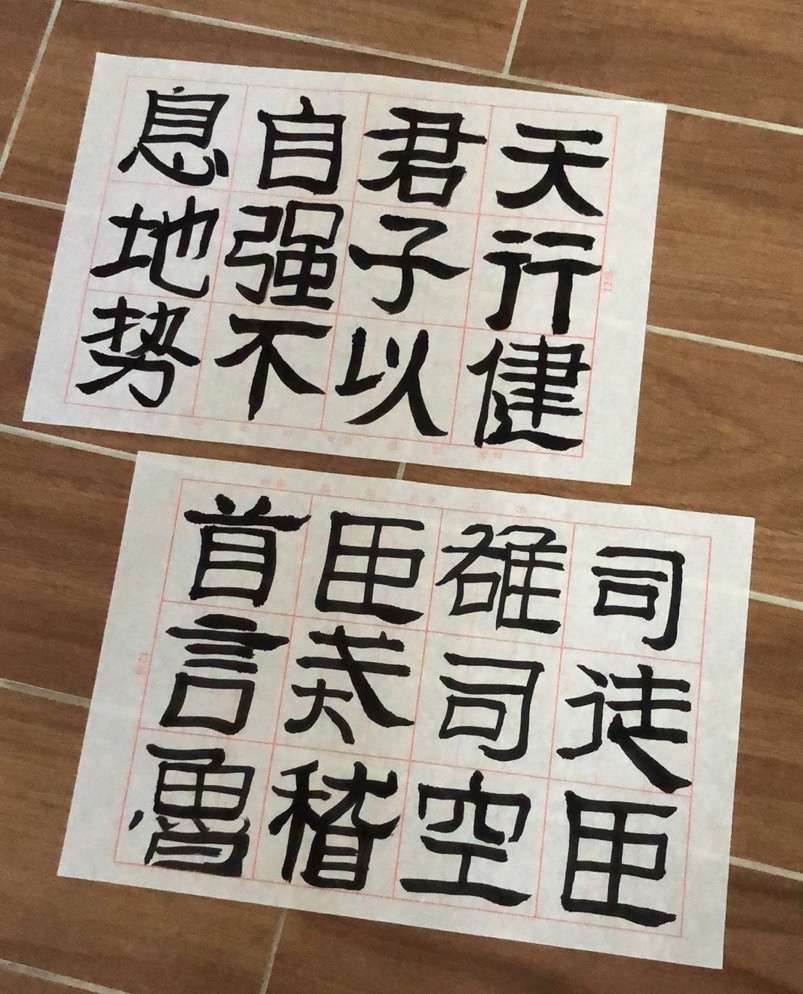 天行健
君子以
自强不
息地势
司徒臣
雄司空
臣戒稽
首言魯